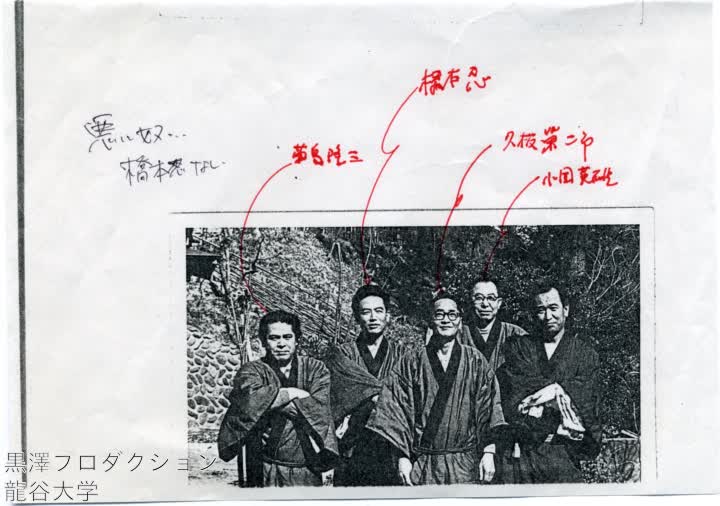 悪い奴…
橋本忍なし
菊島隆三
橋本忍
久板栄二郎
小国英雄
黒澤プロダクション
龍谷大学